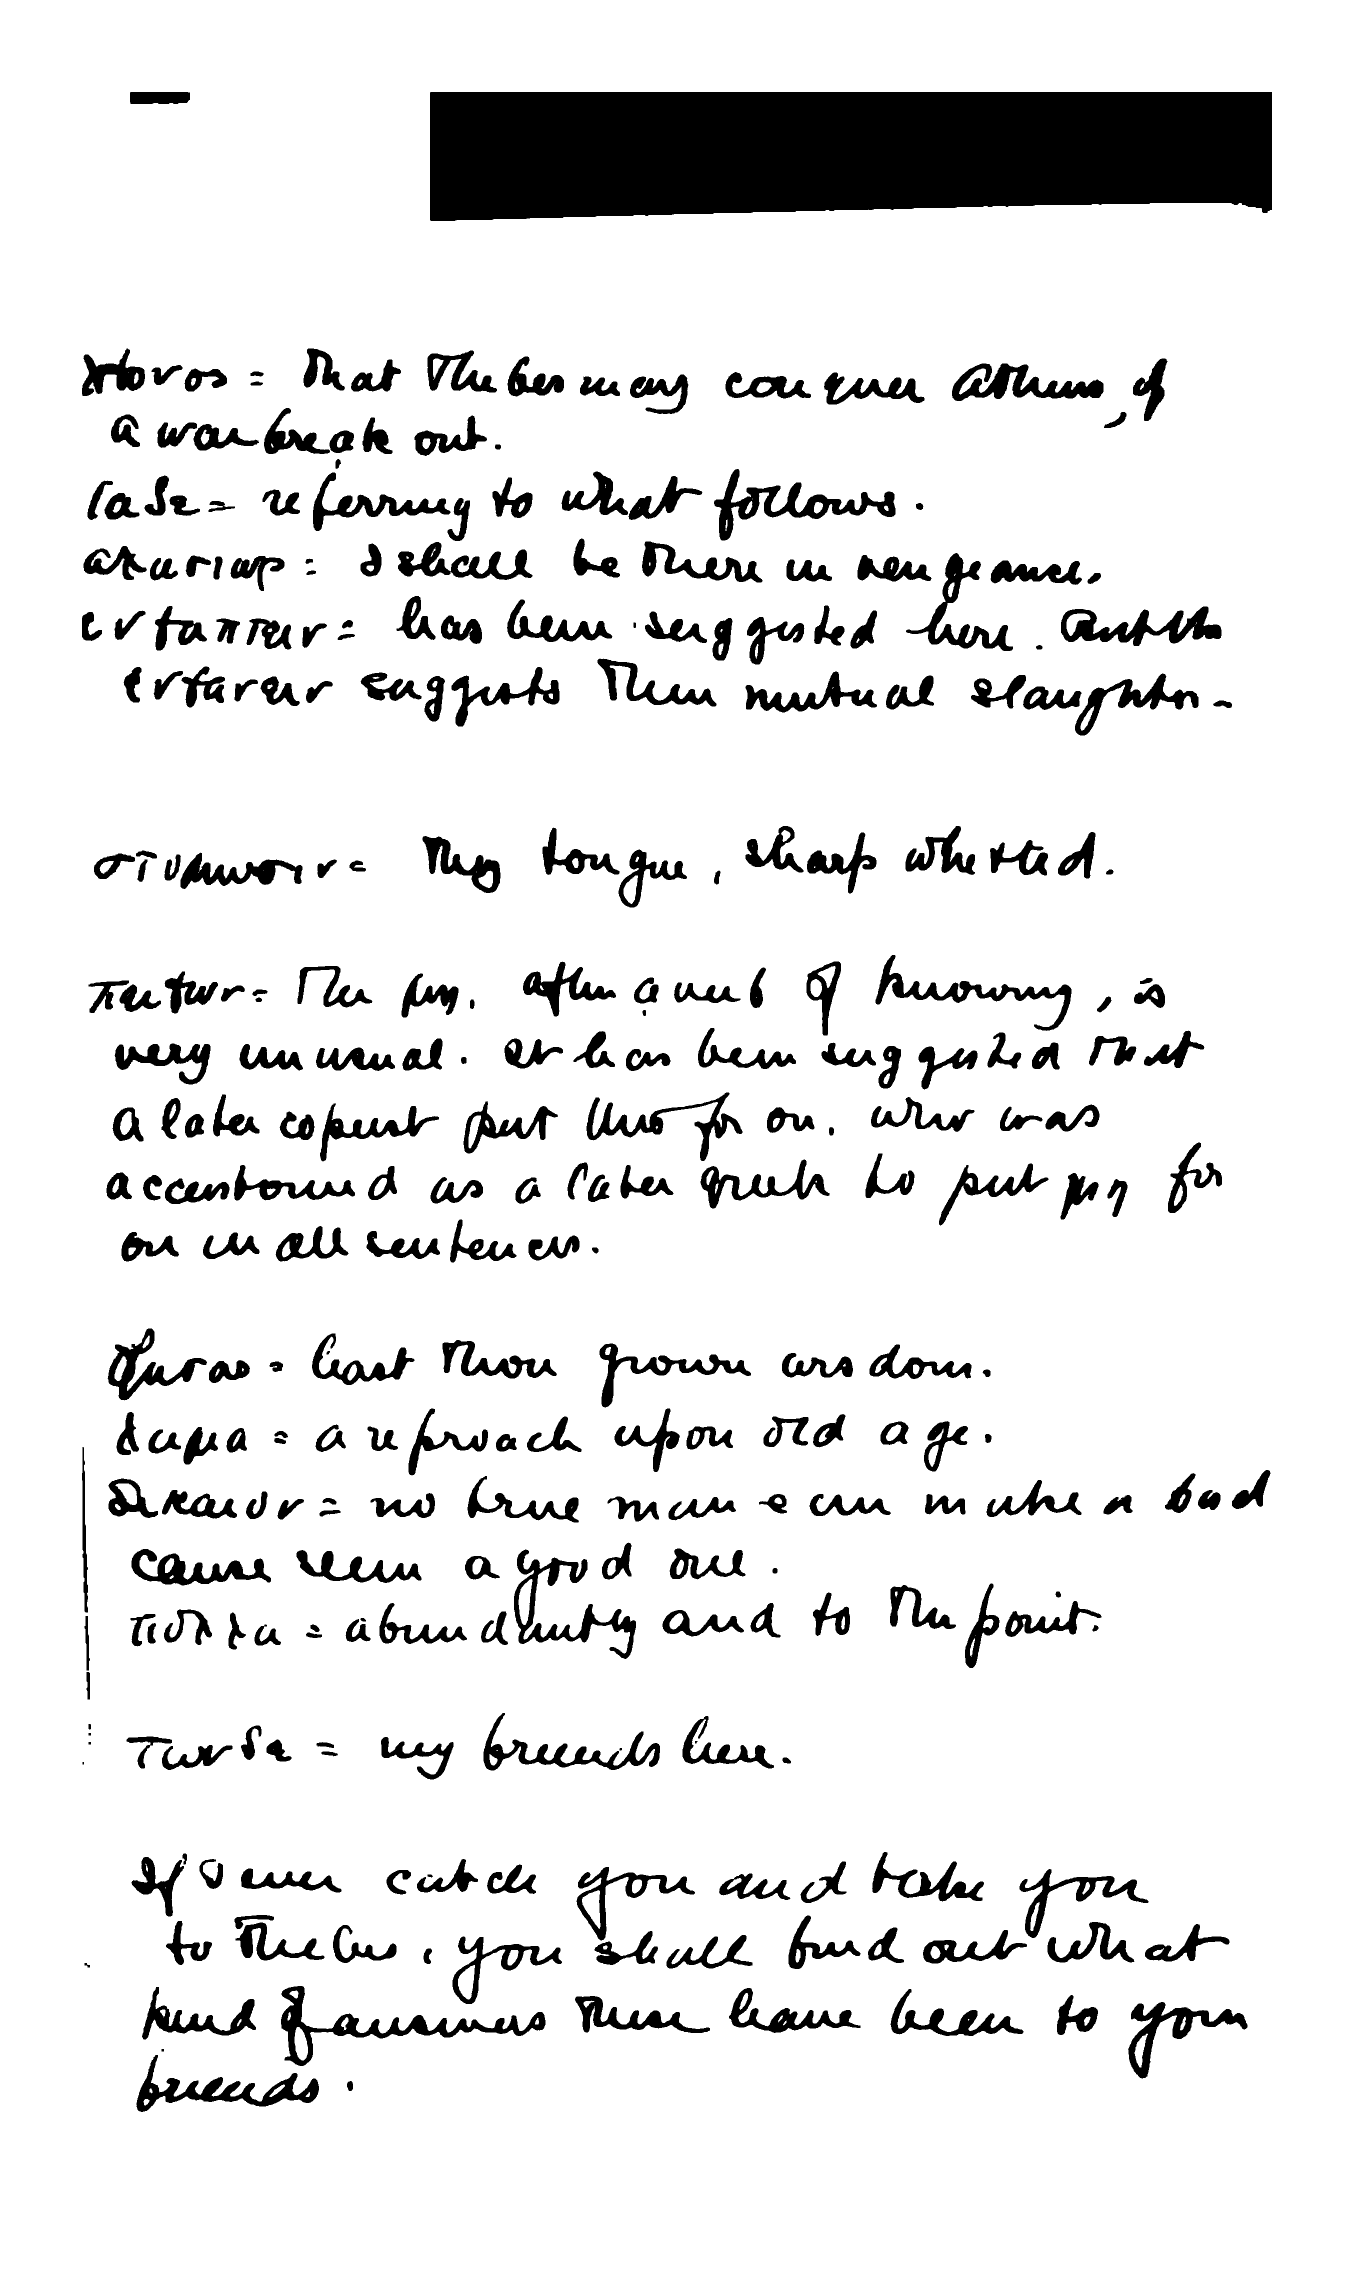 χθονος = that Thebes may conquer Athens, if
a war break out.
ταδε = referring to what follows.
αλαστωρ = I shall be there in vengeance.
ενθαπτειν = has been suggested here. But the
ενθανειν suggests their mutual slaughter.
στομωσιν = Thy tongue, sharp whetted.
πειθων = The μη. after a verb of knowing, is
very unusual. It has been suggested that
a later copyist put this for ου. who was
accustomed as a later greek to put μη for
ου in all sentences.
φυσας = hast thou grown wisdom.
λυμα = a reproach upon old age.
δικαιον = no true man can make a bad
cause seem a good one.
πολλα = abundantly and to the point.
τωνδε = my friends here.
If I ever catch you and take you
to Thebes, you shall find out what
kind of answers these have been to your
friends.